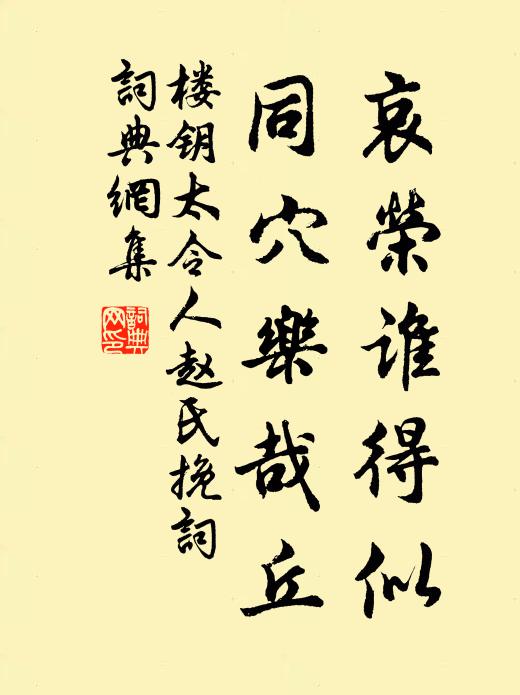 哀榮誰得似
同穴樂哉丘
楼钥太令人赵氏挽詞
詞典網集
詞典网印